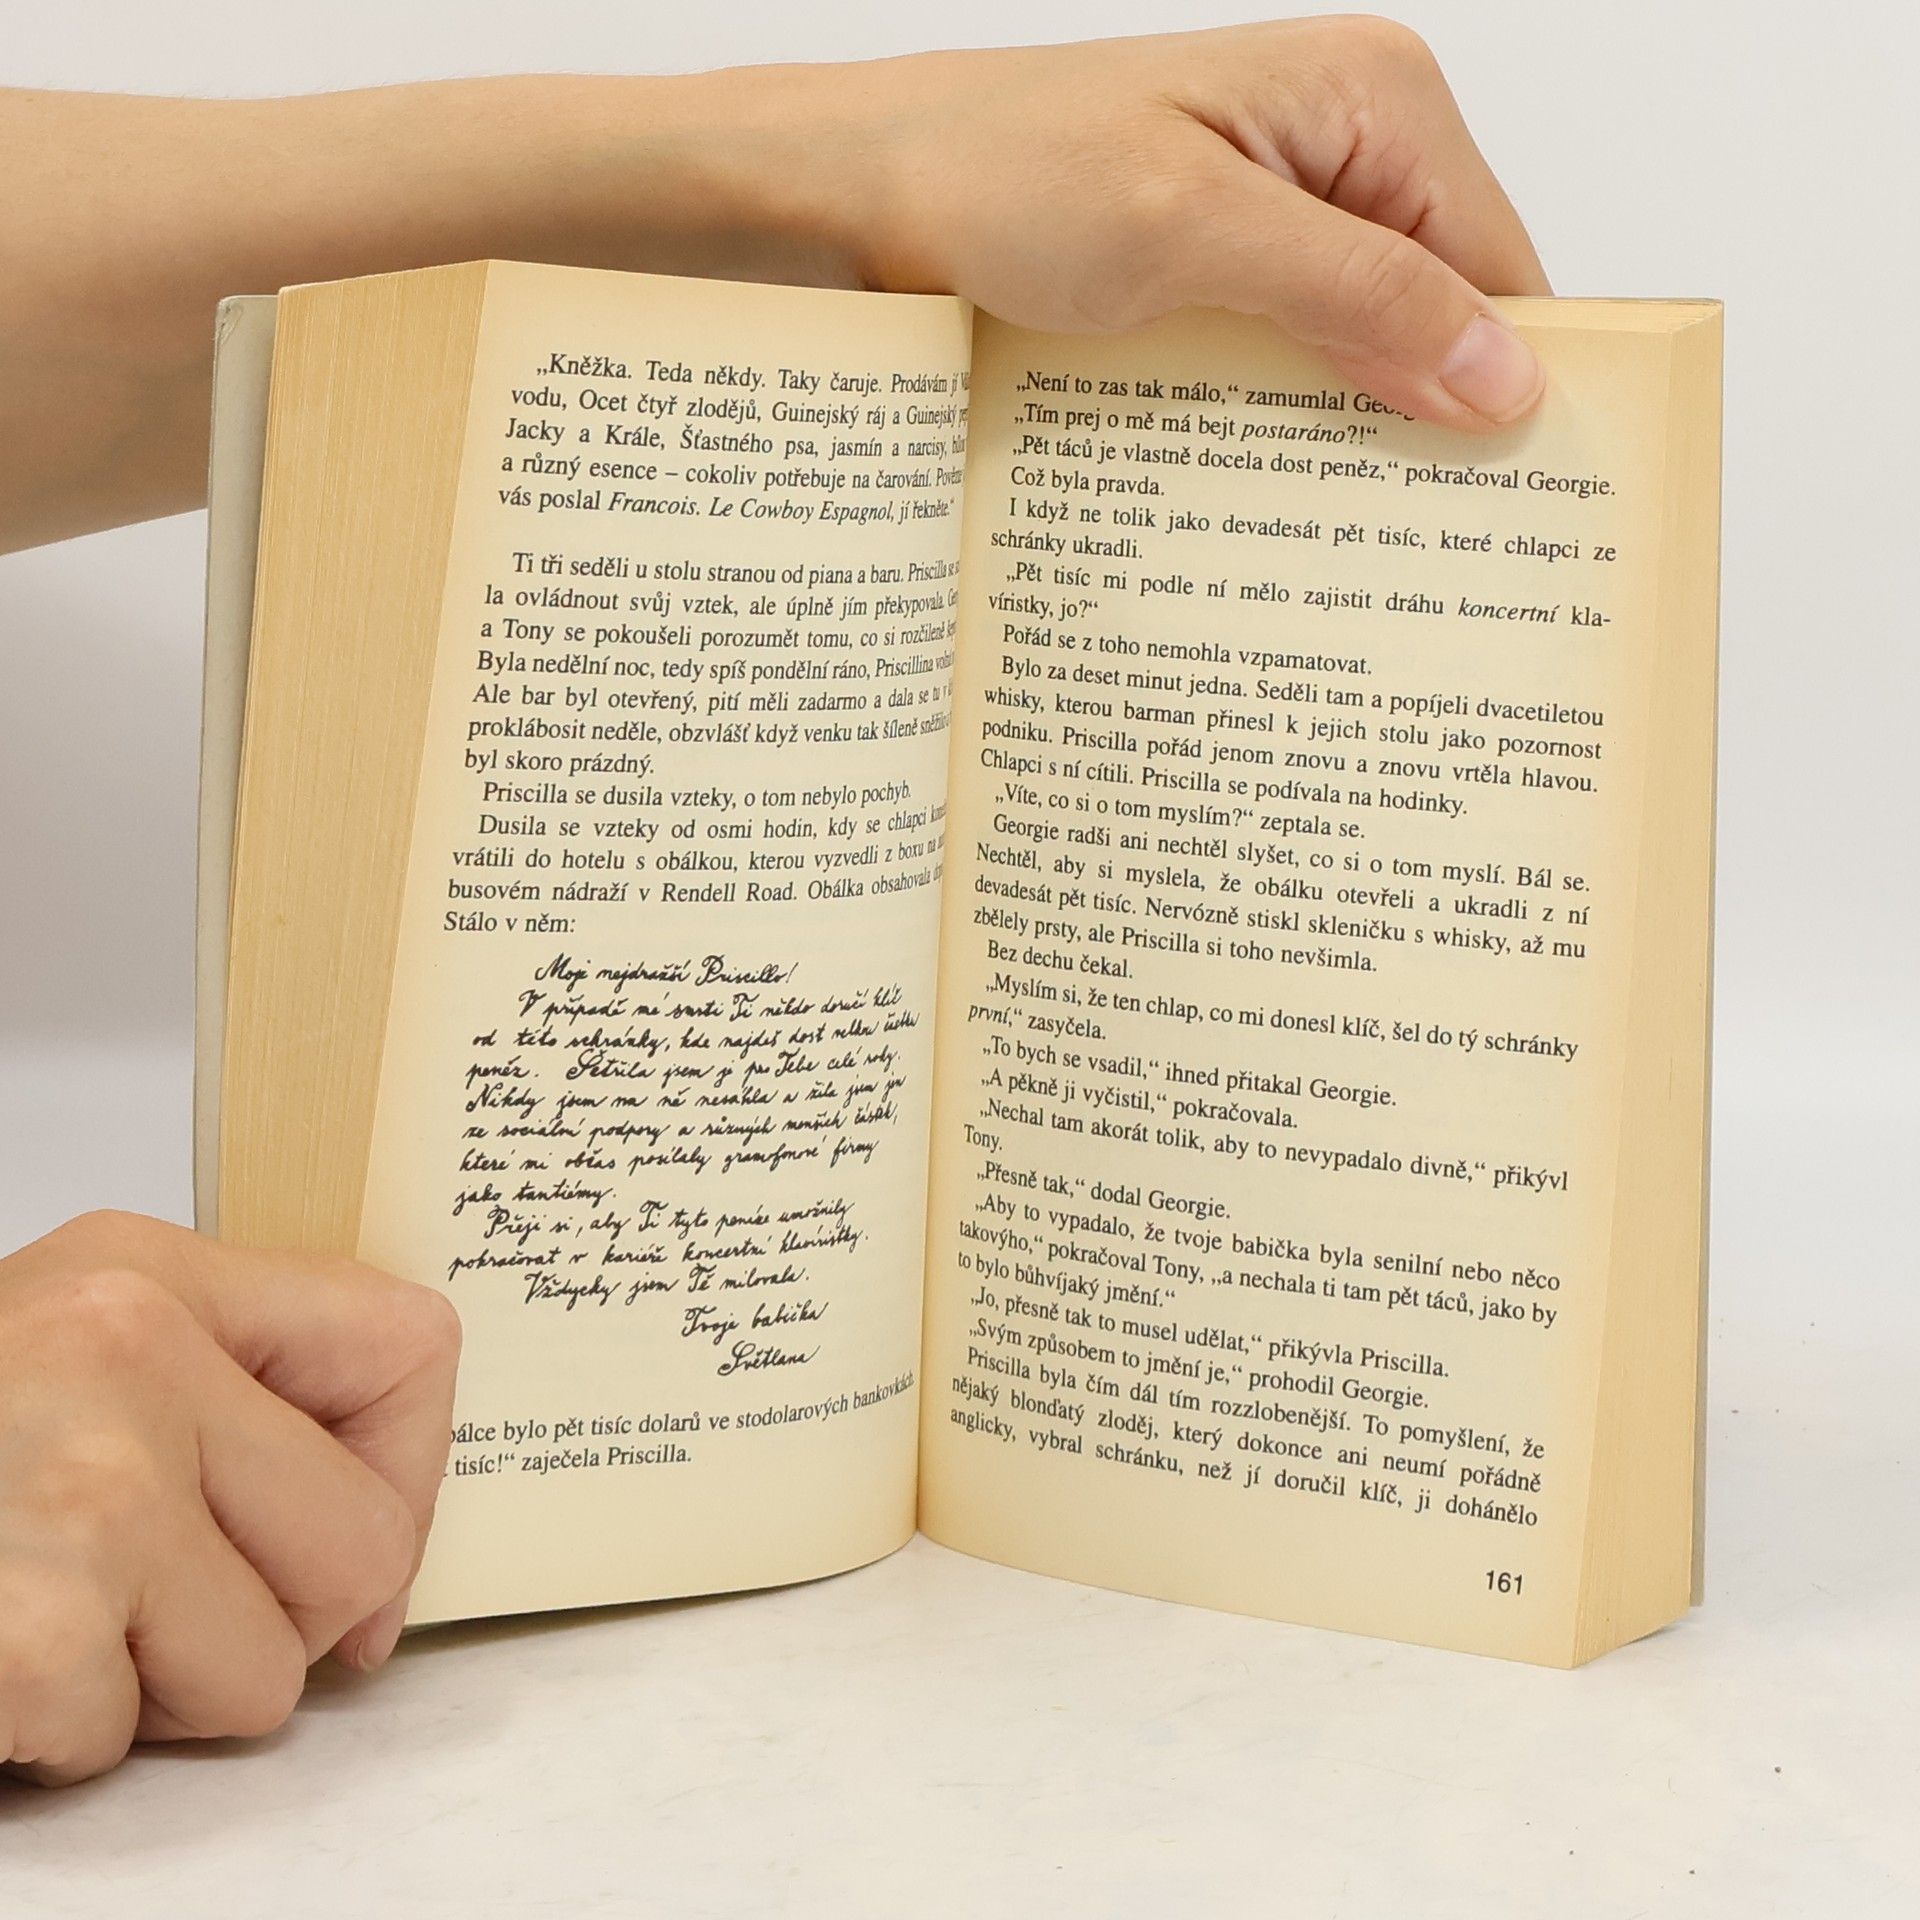 „Kněžka. Teda někdy. Taky čaruje. Prodávám jí
vodu, Ocet čtyř zlodějů, Guinejský ráj a Guinejský
Jacky a Krále, Šťastného psa, jasmín a narcisy,
a různý esence – cokoliv potřebuje na čarování.
vás poslal Francois. Le Cowboy Espagnol, jí řekněte.“
Ti tři seděli u stolu stranou od piana a baru. Priscilla se
la ovládnout svůj vztek, ale úplně jím překypovala.
a Tony se pokoušeli porozumět tomu, co si rozčileně
Byla nedělní noc, tedy spíš pondělní ráno, Priscillina
Ale bar byl otevřený, pití měli zadarmo a dala se tu v
proklábosit neděle, obzvlášť když venku tak šíleně
byl skoro prázdný.
Priscilla se dusila vzteky, o tom nebylo pochyb.
Dusila se vzteky od osmi hodin, kdy se chlapci
vrátili do hotelu s obálkou, kterou vyzvedli z boxu na
busovém nádraží v Rendell Road. Obálka obsahovala
Stálo v něm:
Moje nejdražší Priscillo!
V případě mé smrti Ti někdo doručí klíč
od této schránky, kde najdeš dost velkou částku
peněz. Šetřila jsem je pro Tebe celé roky.
Nikdy jsem na ně nesáhla a žila jsem jen
ze sociální podpory a různých menších částek,
které mi občas posílaly gramofonové firmy
jako tantiémy.
Přeji si, aby Ti tyto peníze umožnily
pokračovat v kariéře koncertní klavíristky.
Vždycky jsem Tě milovala.
Tvoje babička
Světlana
bálce bylo pět tisíc dolarů ve stodolarových bankovkách.
tisíc!“ zaječela Priscilla.
„Není to zas tak málo,“ zamumlal
„Tím prej o mě má bejt postaráno?!“
„Pět táců je vlastně docela dost peněz,“ pokračoval Georgie.
Což byla pravda.
I když ne tolik jako devadesát pět tisíc, které chlapci ze
schránky ukradli.
„Pět tisíc mi podle ní mělo zajistit dráhu koncertní kla-
víristky, jo?“
Pořád se z toho nemohla vzpamatovat.
Bylo za deset minut jedna. Seděli tam a popíjeli dvacetiletou
whisky, kterou barman přinesl k jejich stolu jako pozornost
podniku. Priscilla pořád jenom znovu a znovu vrtěla hlavou.
Chlapci s ní cítili. Priscilla se podívala na hodinky.
„Víte, co si o tom myslím?“ zeptala se.
Georgie radši ani nechtěl slyšet, co si o tom myslí. Bál se.
Nechtěl, aby si myslela, že obálku otevřeli a ukradli z ní
devadesát pět tisíc. Nervózně stiskl skleničku s whisky, až mu
zbělely prsty, ale Priscilla si toho nevšimla.
Bez dechu čekal.
„Myslím si, že ten chlap, co mi donesl klíč, šel do tý schránky
první,“ zasyčela.
„To bych se vsadil,“ ihned přitakal Georgie.
„A pěkně ji vyčistil,“ pokračovala.
„Nechal tam akorát tolik, aby to nevypadalo divně,“ přikývl
Tony.
„Přesně tak,“ dodal Georgie.
„Aby to vypadalo, že tvoje babička byla senilní nebo něco
takovýho,“ pokračoval Tony, „a nechala ti tam pět táců, jako by
to bylo bůhvíjaký jmění.“
„Jo, přesně tak to musel udělat,“ přikývla Priscilla.
„Svým způsobem to jmění je,“ prohodil Georgie.
Priscilla byla čím dál tím rozzlobenější. To pomyšlení, že
nějaký blonďatý zloděj, který dokonce ani neumí pořádně
anglicky, vybral schránku, než jí doručil klíč, ji dohánělo
161